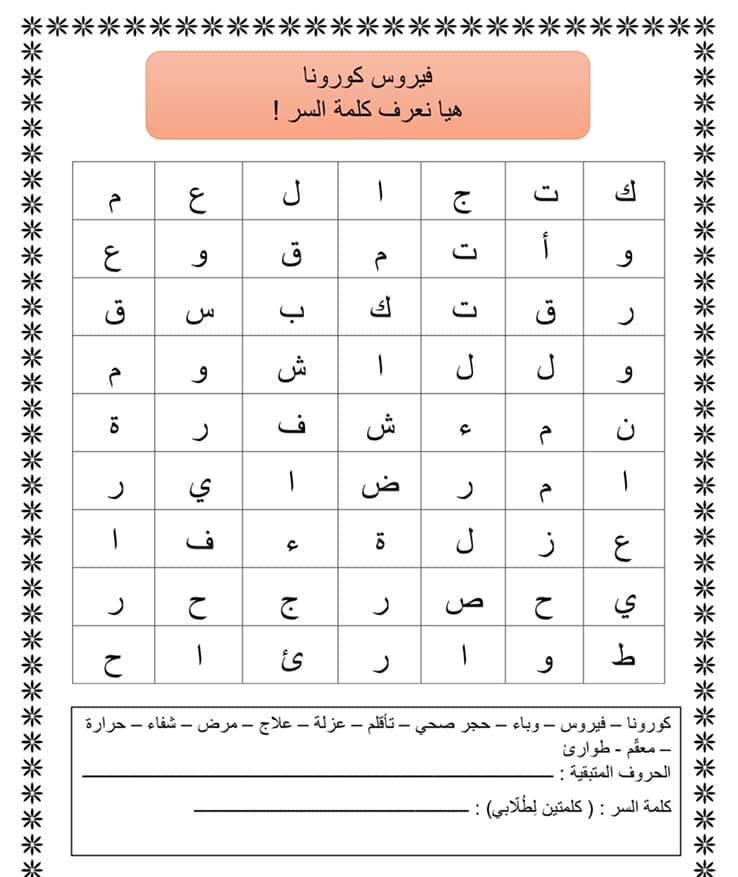 فيروس كورونا
هيا نعرف كلمة السر !
ك ت ج ا ل ع م
و أ ت م ق و ع
ر ق ت ك ب س ق
و ل ل ا ش و م
ن م ء ش ف ر ة
ا م ر ض ا ي ر
ع ز ل ة ء ف ا
ي ح ص ر ج ح ر
ط و ا ر ئ ا ح
كورونا – فيروس – وباء – حجر صحي – تأقلم – عزلة – علاج – مرض – شفاء – حرارة
– معقّم - طوارئ
الحروف المتبقية :
كلمة السر : ( كلمتين لِطُلّابي) :